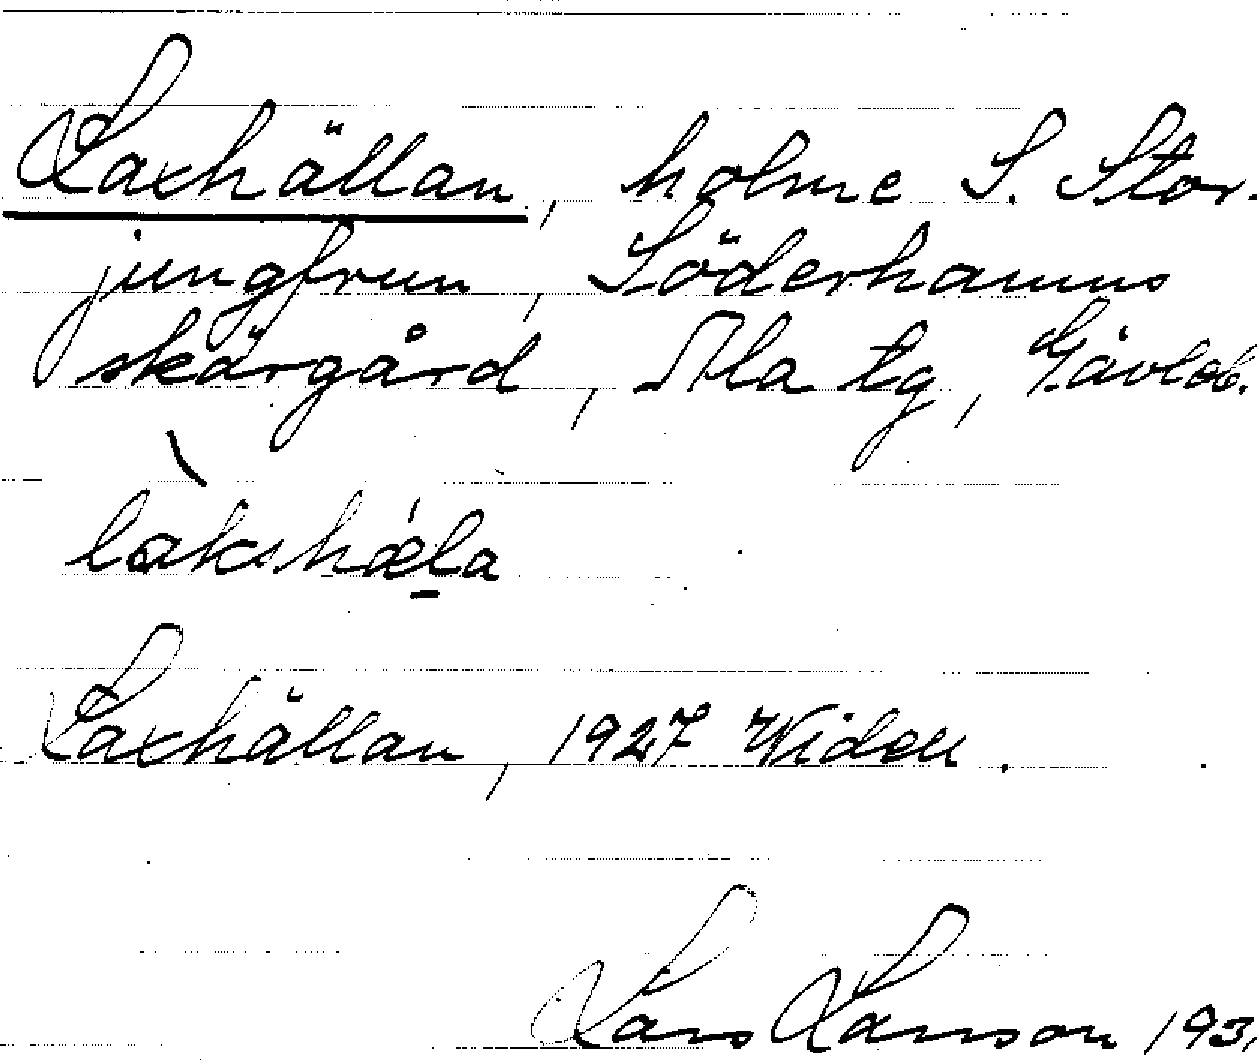 Laxhällan, holme S. Stor-
jungfrun, Söderhamns
skärgård, Ala tg, Gävleb.
làkshǽ̲la
Laxhällan, 1927 Widell.
Lars Larsson 193